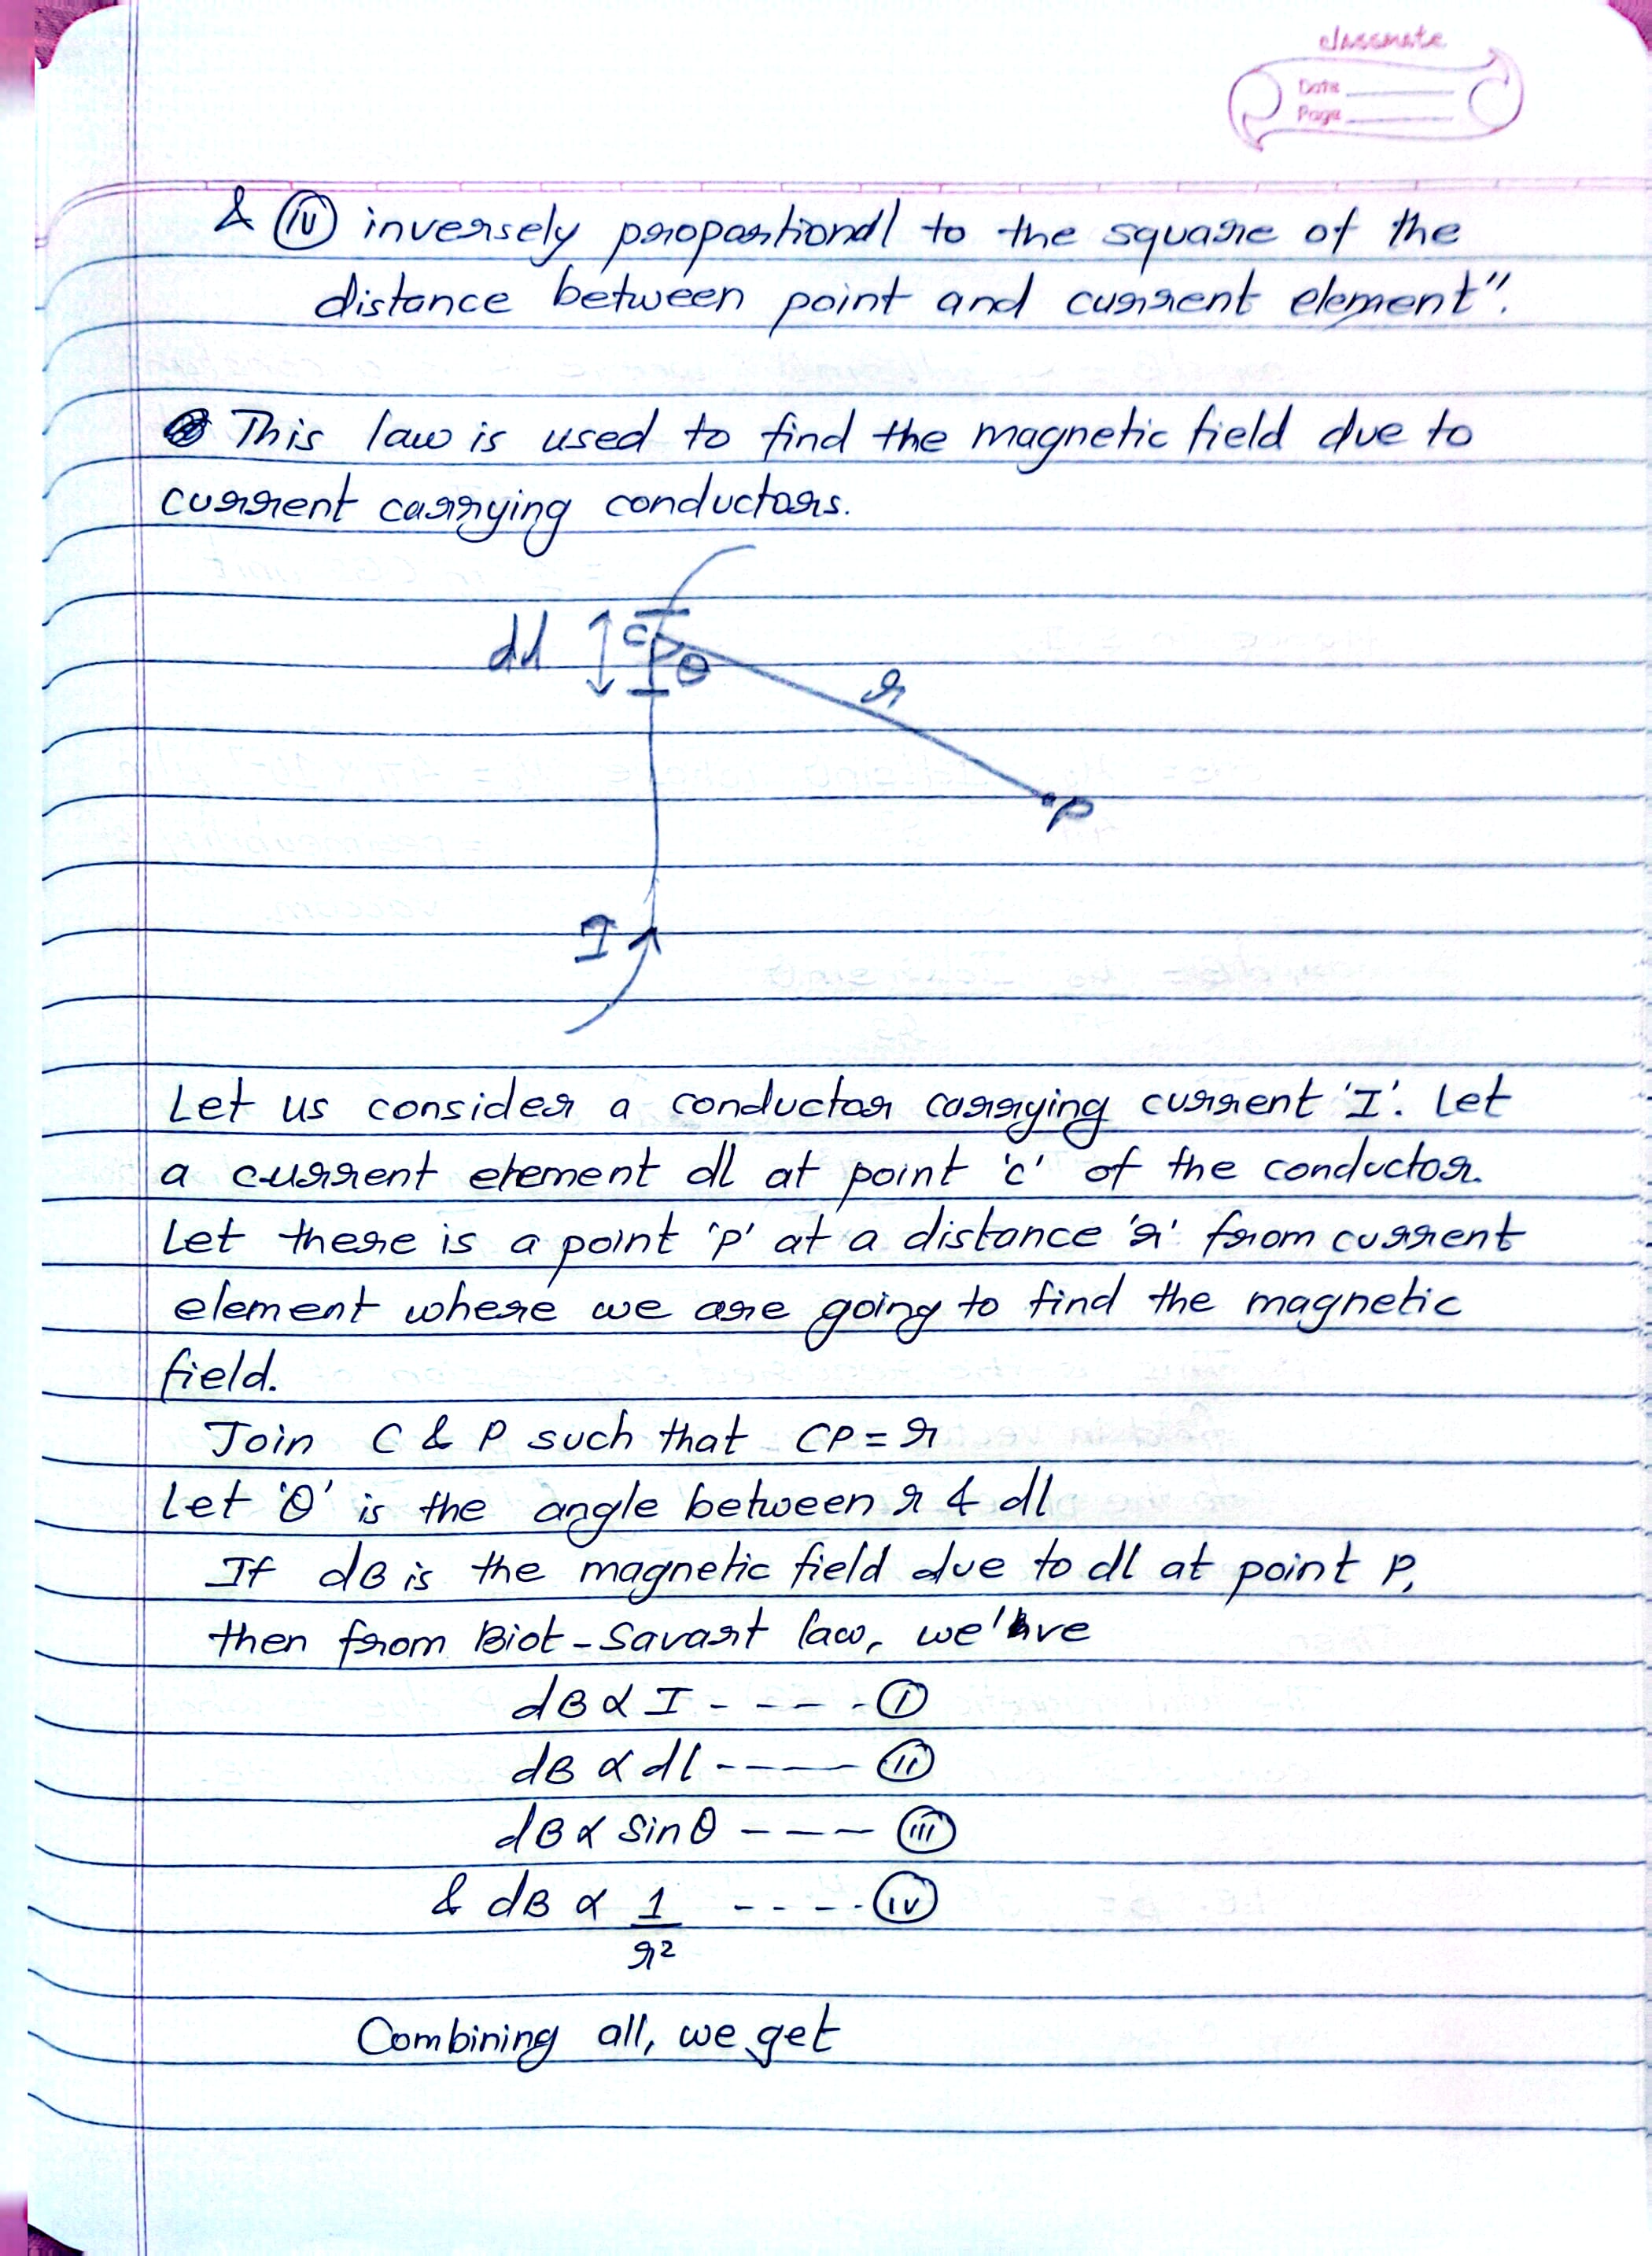 classmate
Date
Page
& (iv) inversely proportional to the square of the
distance between point and current element".
This law is used to find the magnetic field due to
current carrying conductors.
dl
C
θ
r
P
I
Let us consider a conductor carrying current 'I'. Let
a current element dl at point 'c' of the conductor.
Let there is a point 'p' at a distance 'r' from current
element where we are going to find the magnetic
field.
Join C & P such that CP = r
Let 'θ' is the angle between r & dl
If dB is the magnetic field due to dl at point P,
then from Biot-Savart law, we've
dB ∝ I - - - - - (i)
dB ∝ dl - - - - - (ii)
dB ∝ sinθ - - - - (iii)
& dB ∝ 1/r² - - - - - (iv)
Combining all, we get